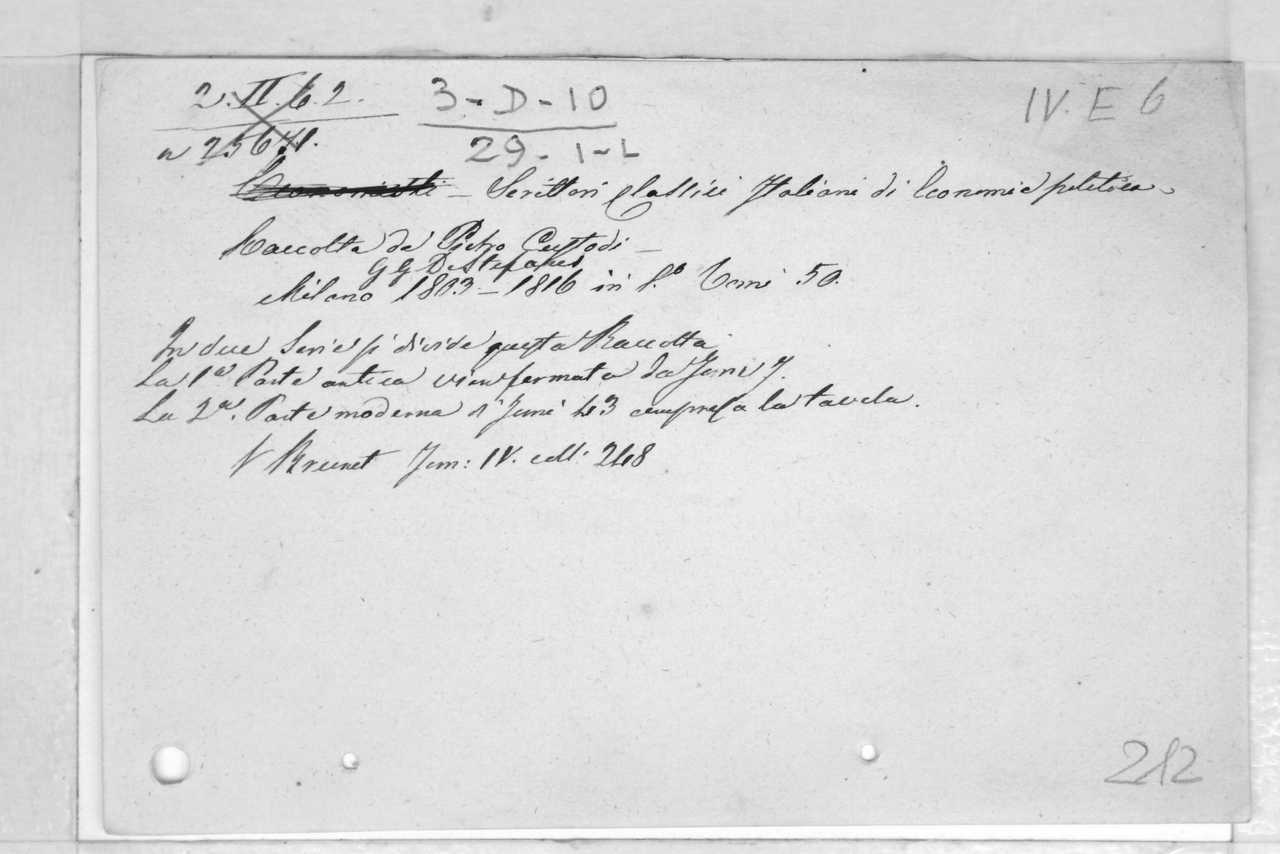 2. II. 6. 2.
3 - D - 10
IV. E 6
29 - 1 - L
Economisti – Scrittori Classici Italiani di Economia politica
Raccolta da Pietro Custodi –
G G Destefanis
Milano 1803 – 1816 in 8.º Tomi 50.
In due Serie si divide questa Raccolta
La 1ª Parte antica vien formata da Tomi 7.
La 2ª. Parte moderna di Tomi 43 compresa la tavola.
V Brunet Tom: IV. coll: 248
212